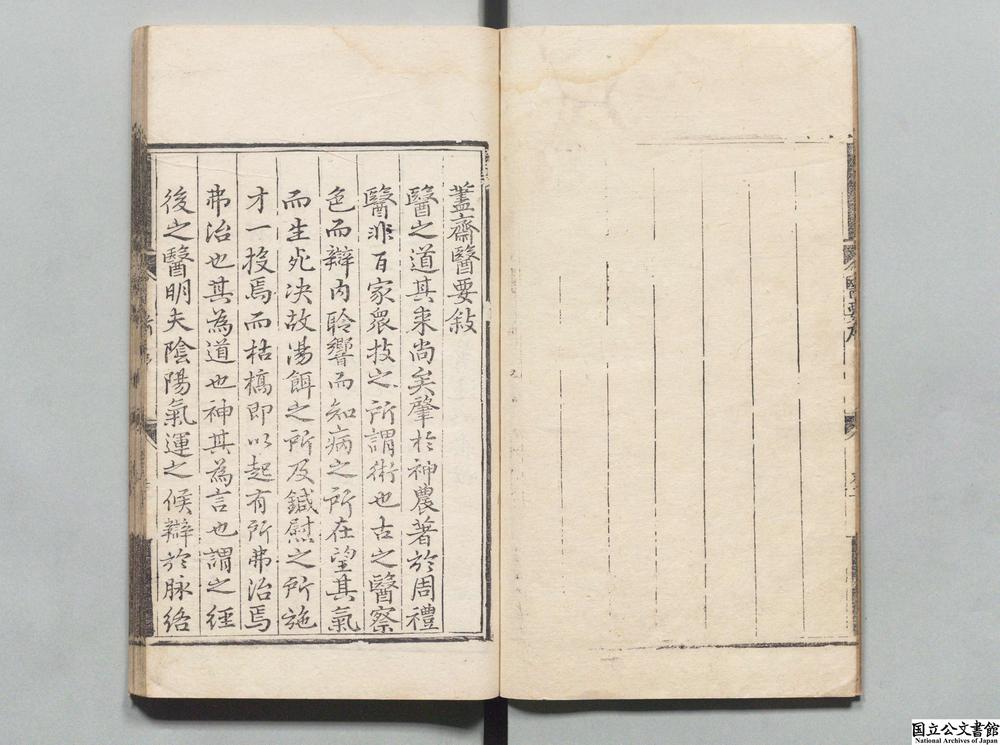 藎齋醫要敍
醫之道其来尚矣肇於神農著於周禮
醫非百家眾技之所謂術也古之醫察
色而辯内聆響而知病之所在望其氣
而生死决故湯餌之所及鍼慰之所施
才一投焉而枯槁即以起有所弗治焉
弗治也其為道也神其為言也謂之經
後之醫明夫陰陽氣運之候辯於脉絡
醫要序
国立公文書館
National Archives of Japan